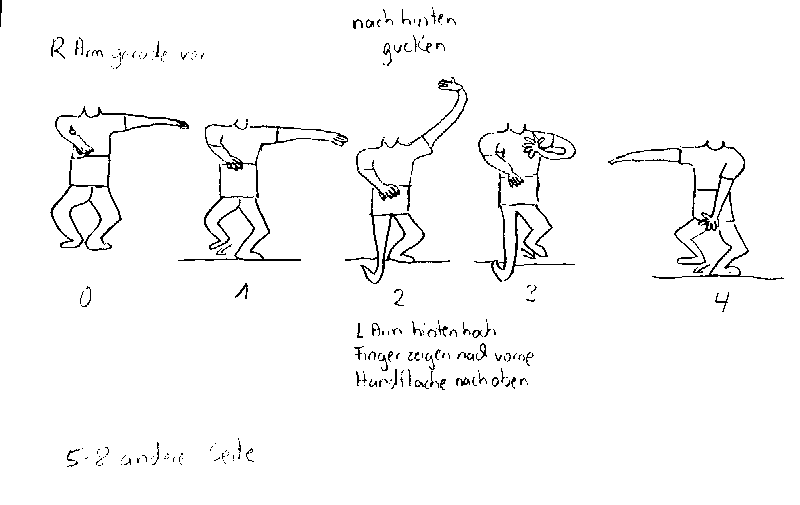 nach hinten
gucken
R Arm gerade vor
0
1
2
3
4
L Arm hinten hoch
Finger zeigen nach vorne
Handfläche nach oben
5-8 andere Seite